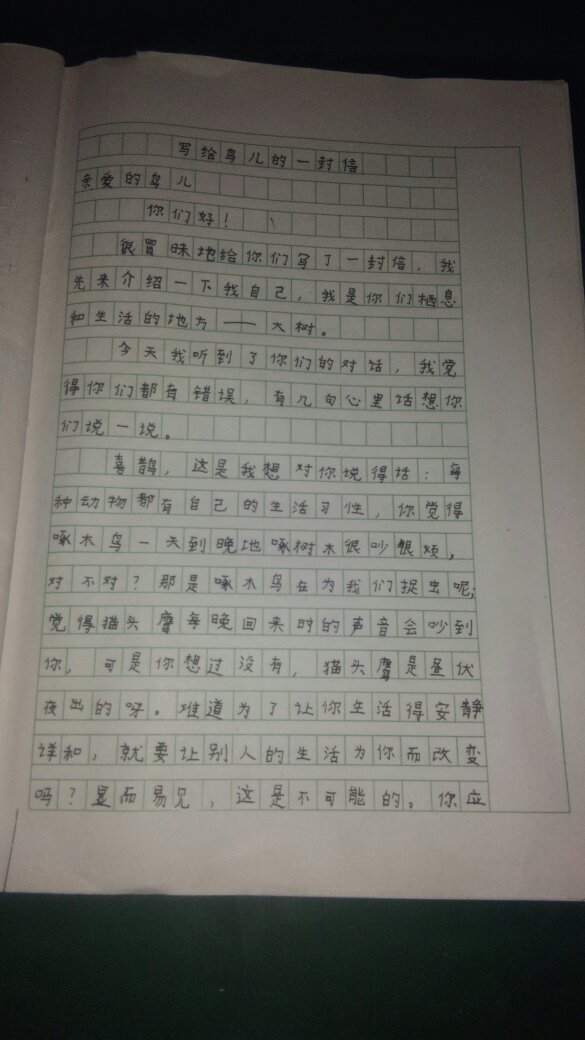 写给鸟儿的一封信
亲爱的鸟儿
你们好！
很冒昧地给你们写了一封信，我
先来介绍一下我自己，我是你们栖息
和生活的地方——大树。
今天我听到了你们的对话，我觉
得你们都有错误，有几句心里话想你
们说一说。
喜鹊，这是我想对你说得话：每
种动物都有自己的生活习性，你觉得
啄木鸟一天到晚地啄树木很吵很烦，
对不对？那是啄木鸟在为我们捉虫呢；
觉得猫头鹰每晚回来时的声音会吵到
你，可是你想过没有，猫头鹰是昼伏
夜出的呀。难道为了让你生活得安静
详和，就要让别人的生活为你而改变
吗？显而易见，这是不可能的。你应